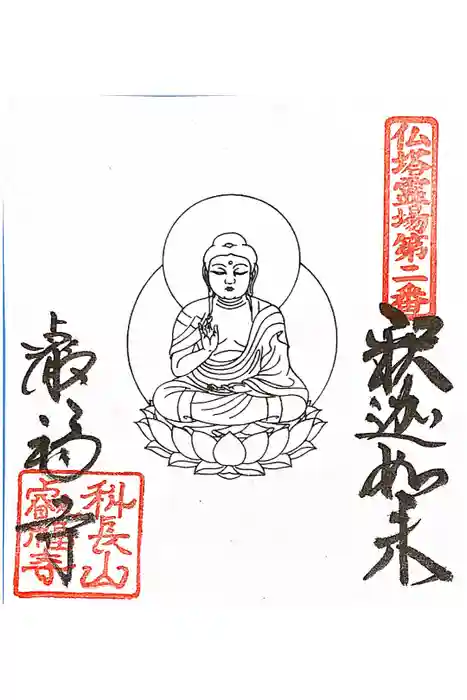 仏塔霊場第二番
釈迦如来
叡福寺
科長山
叡福寺